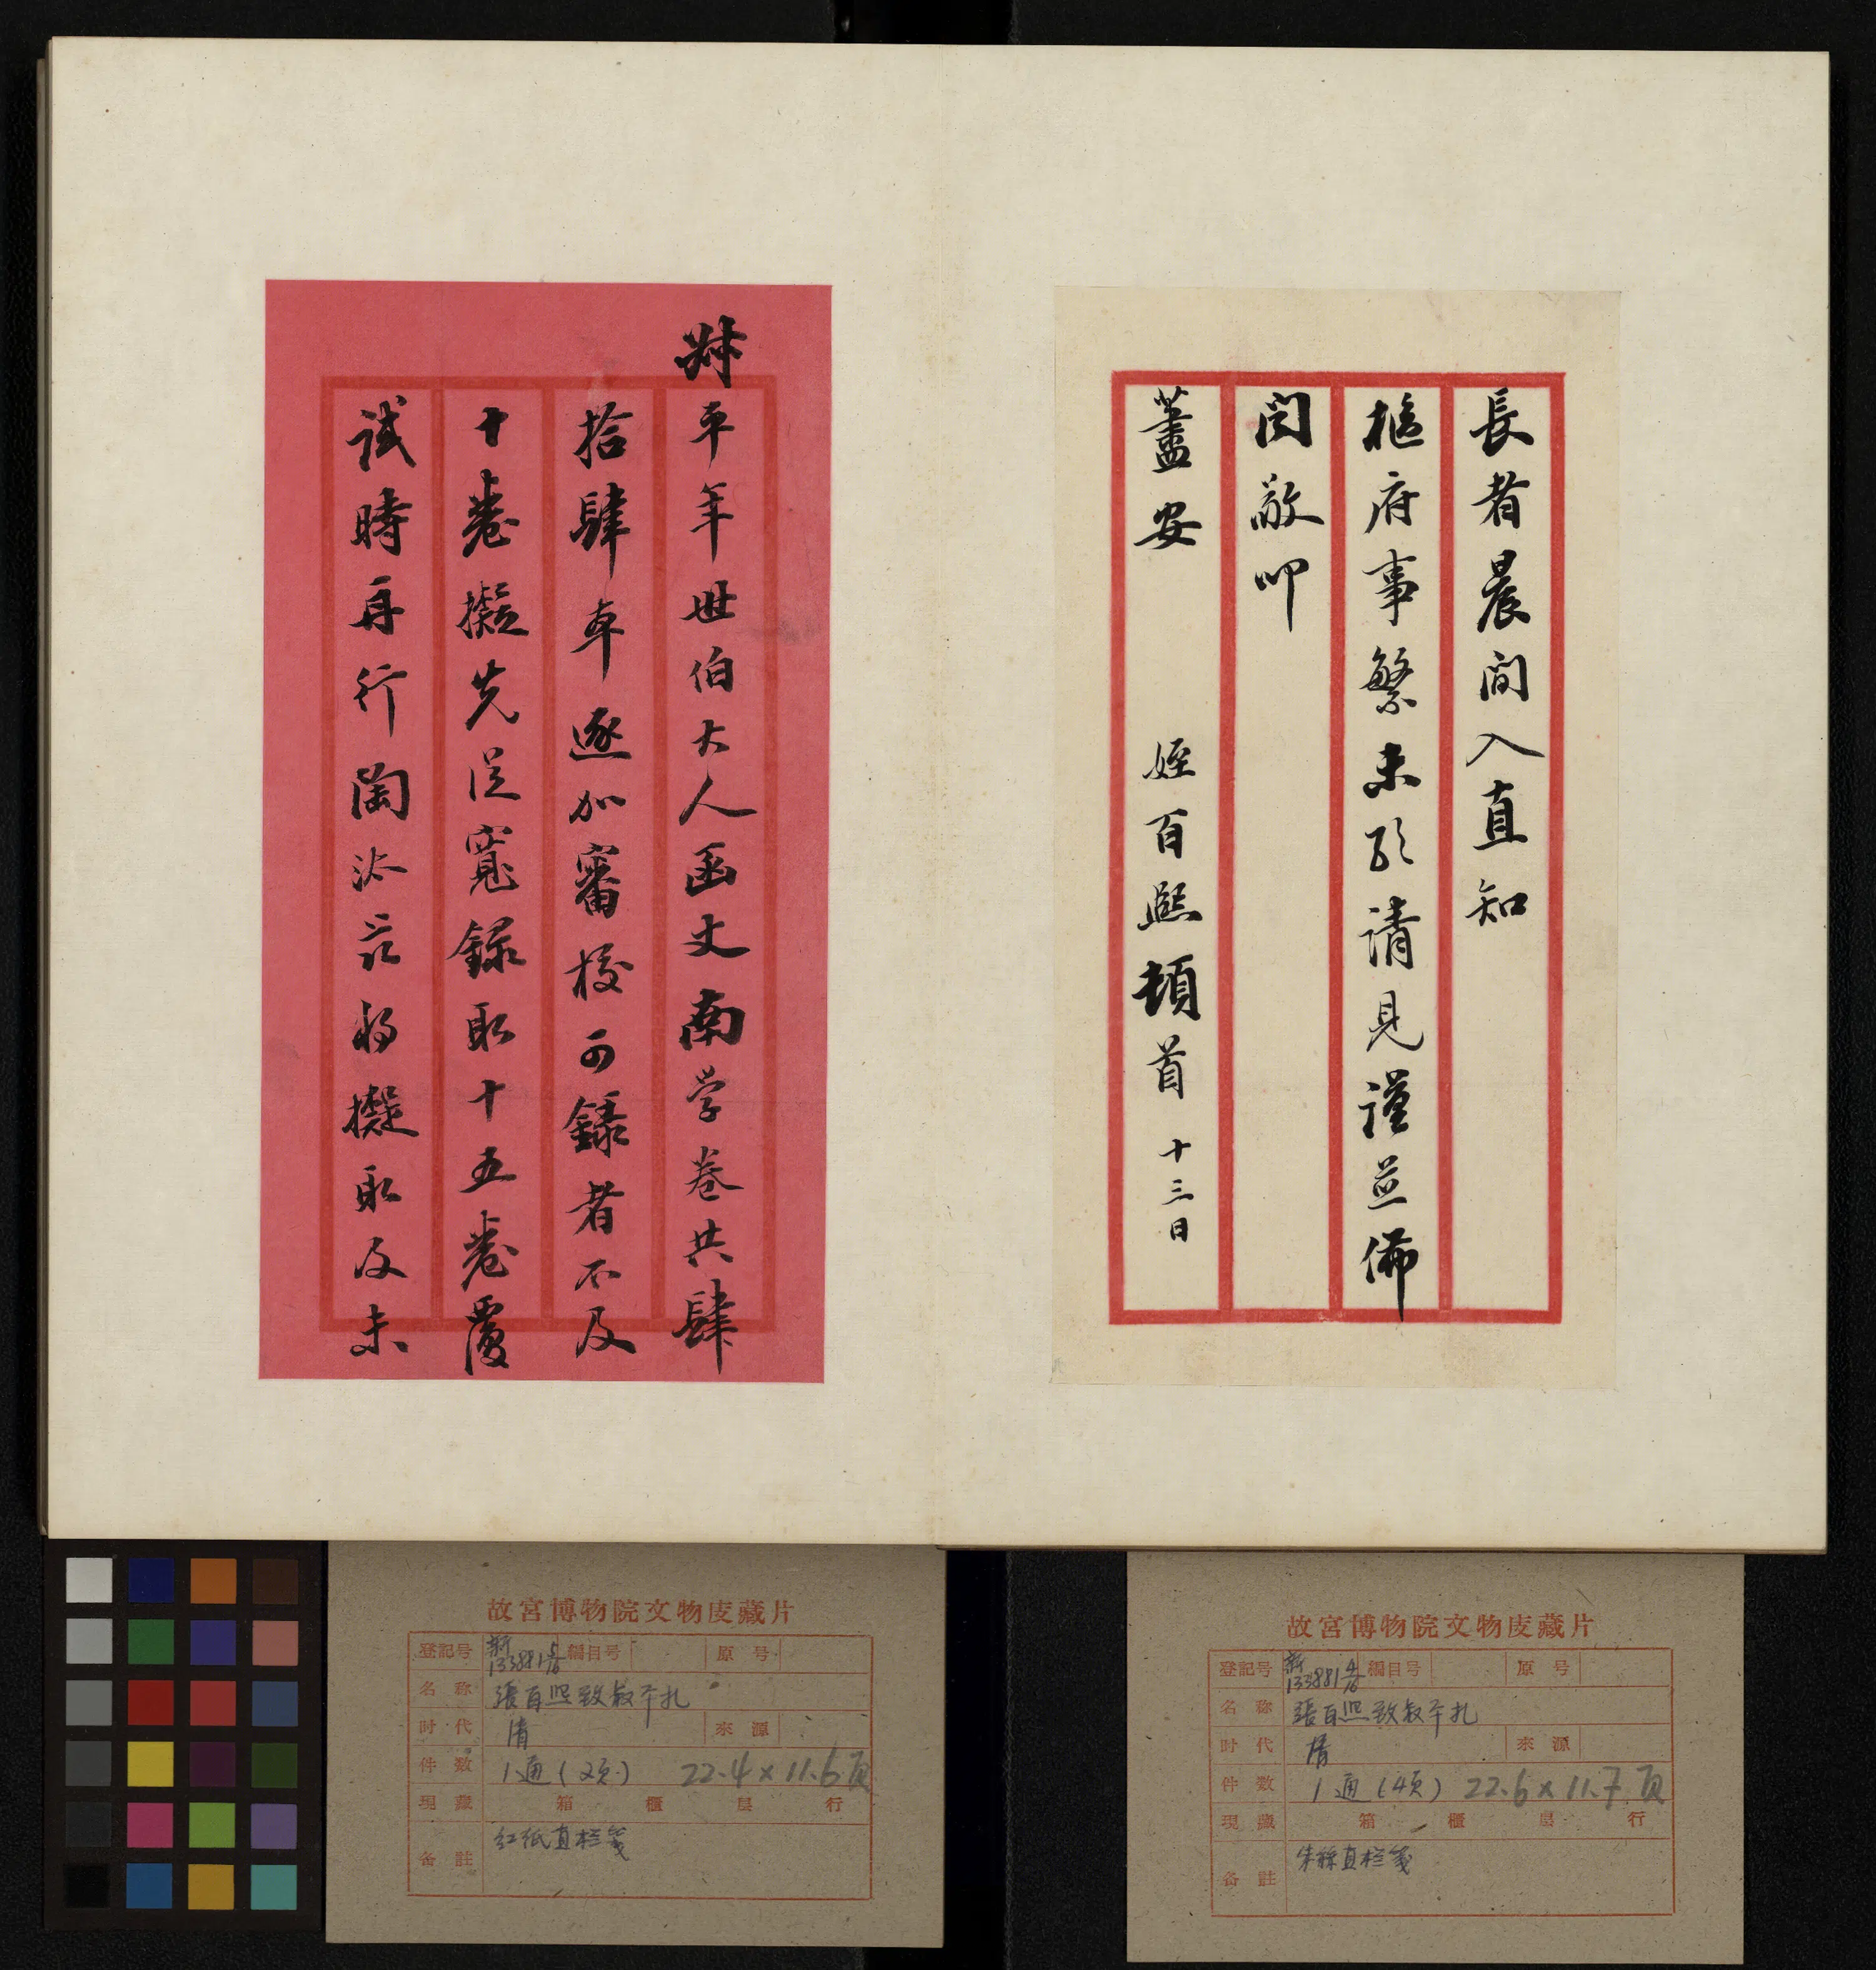 長者晨間入直知
樞府事繁未敢請見謹并佈
聞敬叩
藎安 姪百熙頓首 十三日
叔平年世伯大人函丈南学卷共肆
拾肆本逐加審校可錄者不及
十卷擬先從寬錄取十五卷覆
試時再行陶汰兹將擬取及未
故宮博物院文物庋藏片
登記号 新133881 5/6 編目号 原号
名称 張百熙致叔平札
时代 清 來源
件数 1通(2页) 22.4×11.6頁
現藏 箱 櫃 层 行
备註 红纸直栏箋
故宮博物院文物庋藏片
登記号 新133881 4/6 編目号 原号
名称 張百熙致叔平札
时代 清 來源
件数 1通(4页) 22.6×11.7頁
現藏 箱 櫃 层 行
备註 朱絲直栏箋